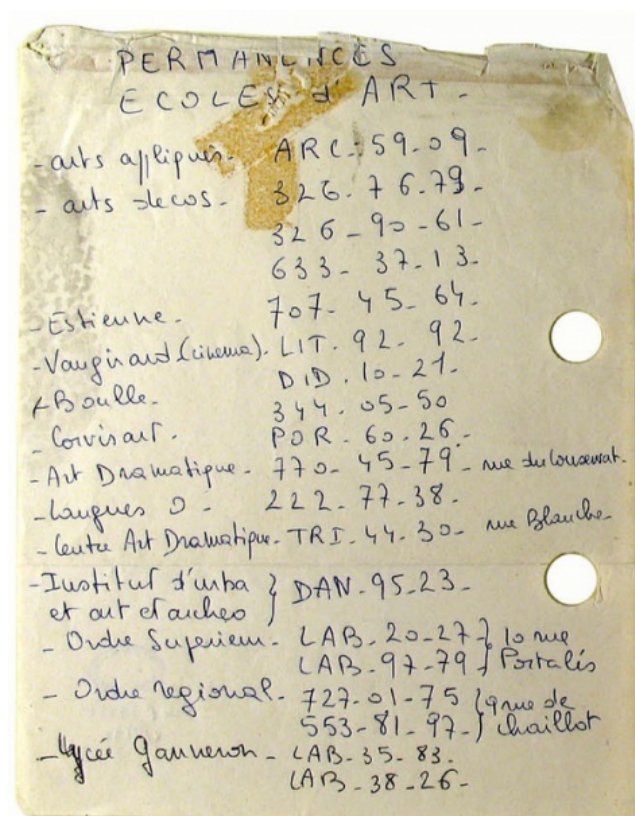 PERMANENCES
ECOLES d'ART -
- arts appliqués - ARC. 59-09-
- arts decos - 326. 76.79-
326-90-61-
633- 37-13-
- Estienne - 707- 45- 64-
- Vaugirard (cinema). LIT. 92- 92.
- Boulle - DID. 10-21-
344-05-50
- Corvisart. POR-60.26-
- Art Dramatique - 770-45-79- rue du Conservat.
- Langues O - 222-77-38.
- Centre Art Dramatique. TRI-44-30- rue Blanche-
- Institut d'urba } DAN-95-23-
et art et archeo
- Ordre Superieur - LAB-20-27 } 10 rue
LAB-97-79 } Portalis
- Ordre regional - 727-01-75 } 9 rue de
553-81-97- } chaillot
- Lycée Ganneron - LAB-35-83.
LAB-38-26-